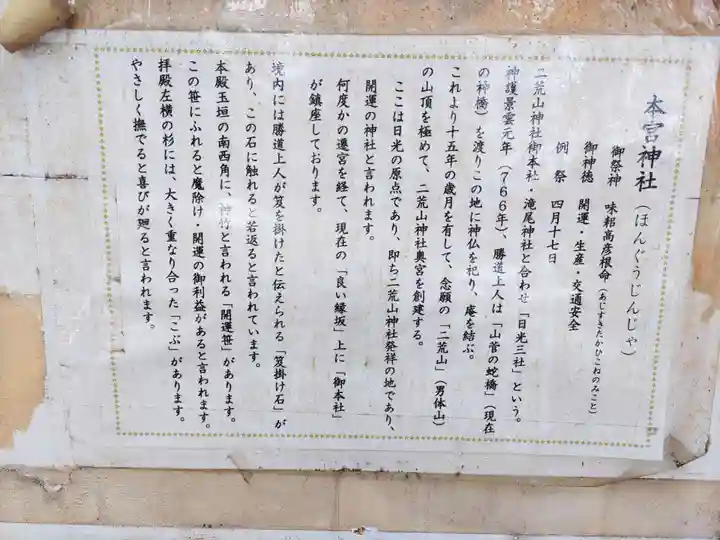 本宮神社(ほんぐうじんじゃ)
御祭神　味耜高彦根命(あじすきたかひこねのみこと)
御神徳　開運・生産・交通安全
例　祭　四月十七日
二荒山神社御本社・滝尾神社と合わせ「日光三社」という。
神護景雲元年(766年)、勝道上人は「山菅の蛇橋」(現在
の神橋)を渡りこの地に神仏を祀り、庵を結ぶ。
これより十五年の歳月を有して、念願の「二荒山」(男体山)
の山頂を極めて、二荒山神社奥宮を創建する。
ここは日光の原点であり、即ち二荒山神社発祥の地であり、
開運の神社と言われます。
何度かの遷宮を経て、現在の「良い縁坂」上に「御本社」
が鎮座しております。
境内には勝道上人が笈を掛けたと伝えられる「笈掛け石」が
あり、この石に触れると若返ると言われています。
本殿玉垣の南西角に、神竹と言われる「開運笹」があります。
この笹にふれると魔除け・開運の御利益があると言われます。
拝殿左横の杉には、大きく重なり合った「こぶ」があります。
やさしく撫でると喜びが廻ると言われます。